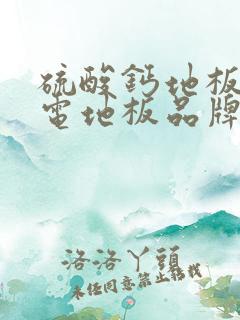 硫酸鈣地板
電地板品牌
洛洛丫頭
未经同意禁止转载